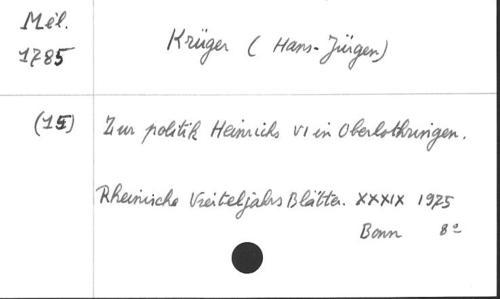 Mél.
1785
Krüger (Hans-Jürgen)
(15) Zur politik Heinrichs VI in Oberlothringen.
Rheinische Vierteljahrs Blätter. XXXIX 1975
Bonn 8º